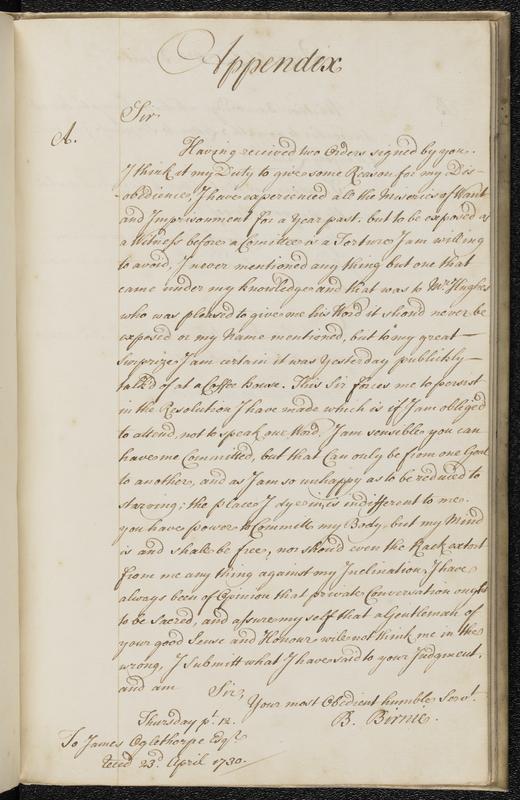 Appendix
A.
Sir,
Having received two Orders signed by you.
I think it my Duty to give some Reason for my Dis-
-obedience, I have experienced all the Miseries of Want
and Imprisonment for a Year past. but to be exposed as
a Witness before a Comittee is a Torture I am willing
to avoid, I never mentioned any thing but one that
came under my knowledge and that was to Mr. Hughes
who was pleased to give me his Word it should never be
exposed or my Name mentioned, but to my great
Surprize I am certain it was Yesterday publickly
talk'd of at a Coffee house. This Sir forces me to persist
in the Resolution I have made which is if I am obliged
to attend, not to speak one Word, I am sensible you can
have me Committed, but that Can only be from one Goal
to another, and as I am so unhappy as to be reduced to
starving; the place I dye in, is indifferent to me.
you have power to Committ my Body, but my Mind
is and shall be free, nor should even the Rack extort
from me any thing against my Inclination, I have
always been of Opinion that private Conversation ought
to be Sacred, and assure my self that a Gentleman of
your good Sense and Honour will not think me in the
wrong, I submitt what I have said to your Judgment,
and am Sir,
Your most Obedient humble Servt.
Thursday pt. 12. B. Birnie.
To James Oglethorpe Esqr.
Recd. 23d. April 1730.